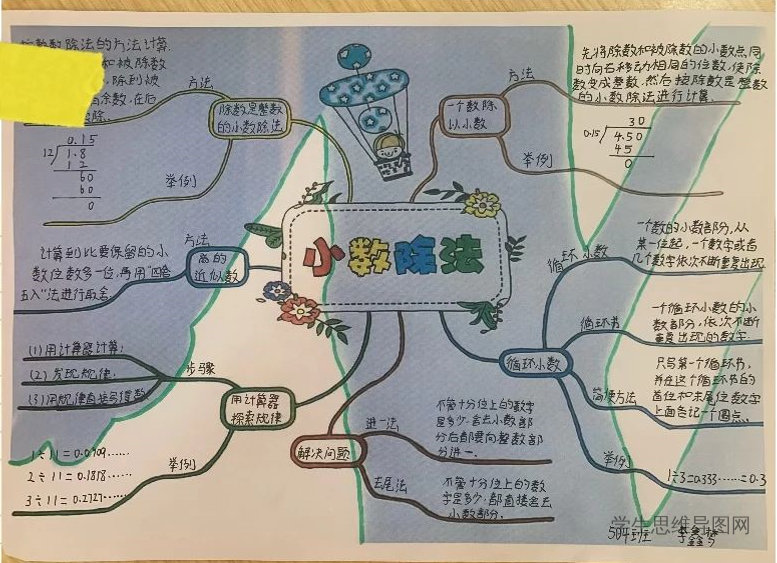 小数除法
除数是整数
的小数除法
方法
数除法的方法计算.
和被除数
,除到被
余数,在后
除.
举例
0.15
12 1.8
1 2
60
60
0
一个数除
以小数
方法
先将除数和被除数的小数点同
时向右移动相同的位数,使除
数变成整数,然后按除数是整数
的小数除法进行计算.
举例
30
0.15 4.50
45
0
商的
近似数
方法
计算到比要保留的小
数位数多一位,再用“四舍
五入”法进行取舍
循环小数
循环小数
一个数的小数部分,从
某一位起,一个数字或者
几个数字依次不断重复出现
循环节
一个循环小数的小
数部分,依次不断
重复出现的数字.
简便方法
只写第一个循环节,
并在这个循环节的
首位和末尾位数字
上面各记一个圆点.
举例
1÷3=0.333……=0.3
用计算器
探索规律
步骤
(1)用计算器计算;
(2)发现规律;
(3)用规律直接写得数
举例
1÷11=0.0909……
2÷11=0.1818……
3÷11=0.2727……
解决问题
进一法
不管十分位上的数字
是多少,舍去小数部
分后都要向整数部
分进一.
去尾法
不管十分位上的数
字是多少,都直接舍去
小数部分.
学生思维导图网